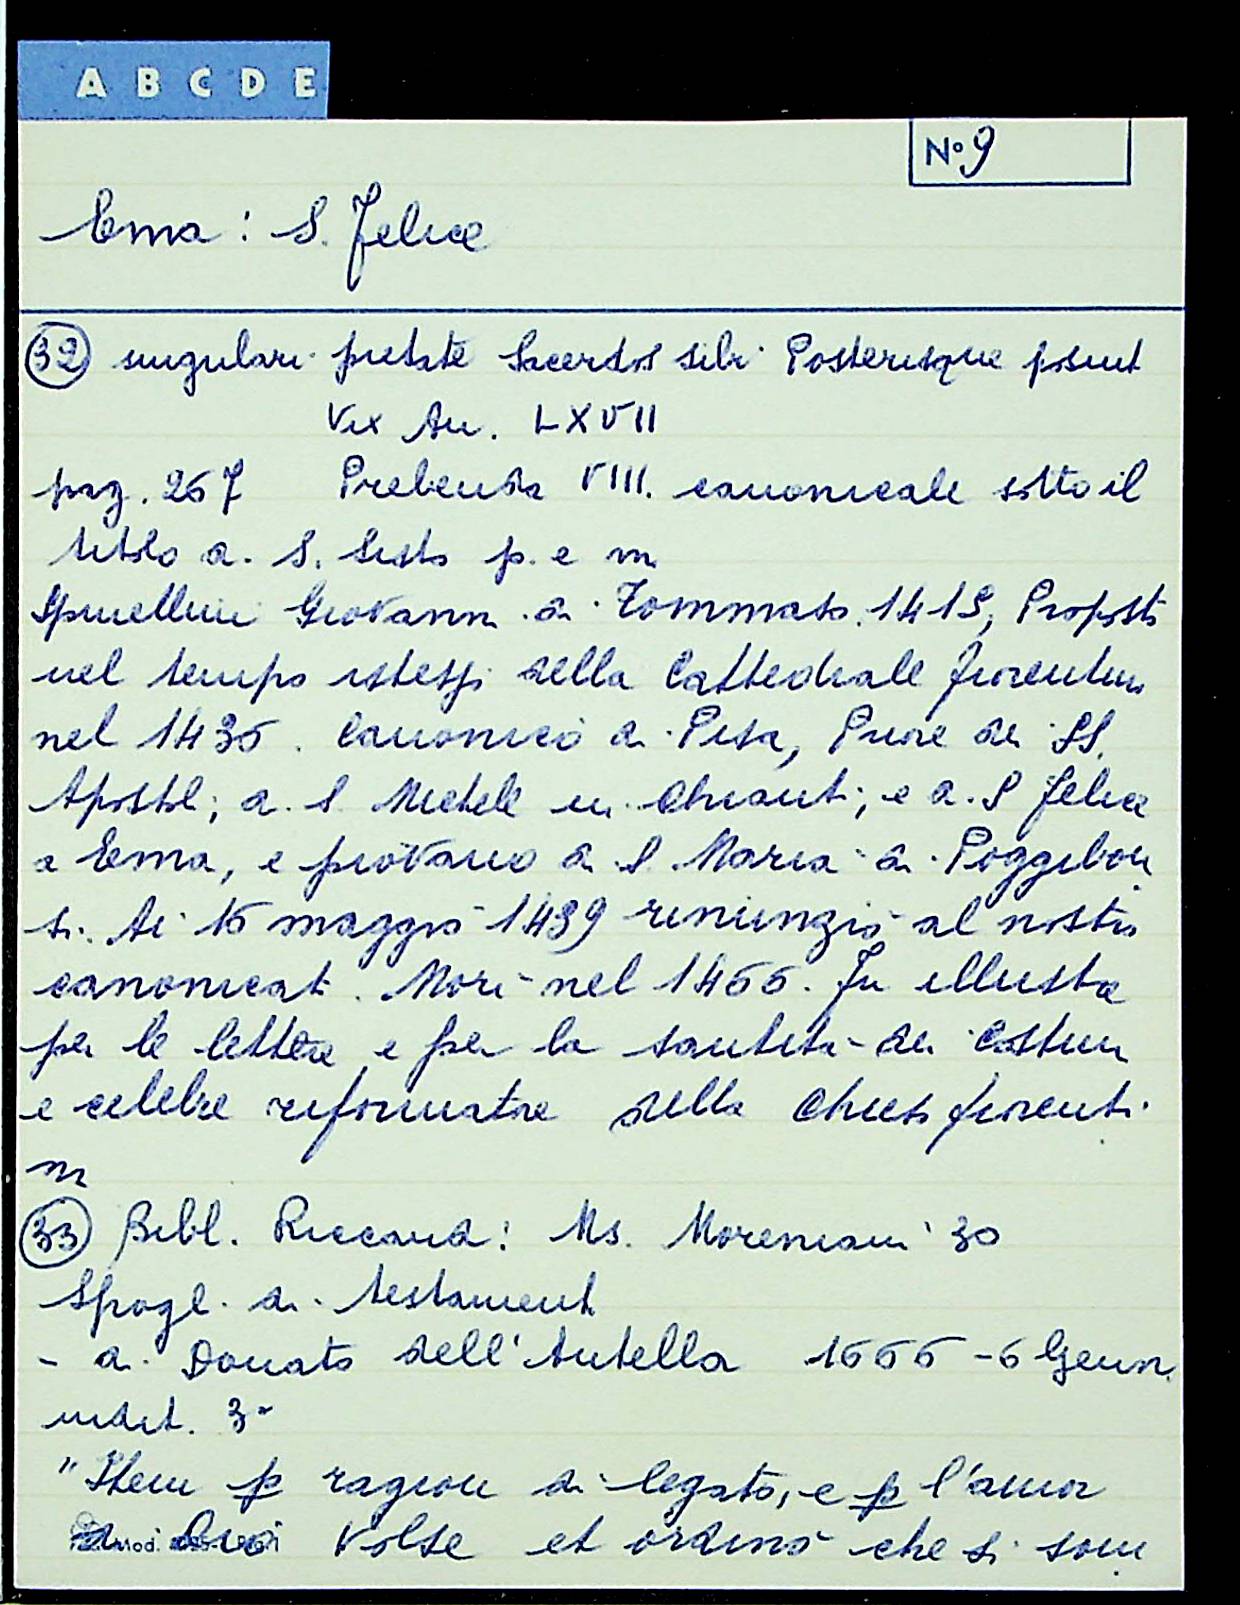 A B C D E
Nº 9
Ema: S. Felice
32 singulari pietate Sacerdos sibi Posterisque posuit
Vix An. LXVII
pag. 267 Prebenda VIII. canonicale sotto il
titolo di S. Sisto p. e m
Spinellini Giovanni di Tommaso. 1419, Proposto
nel tempo istesso della Cattedrale fiorentina
nel 1435. Canonico di Pisa, Priore dei SS.
Apostoli; di S. Michele in Chianti; e di S Felice
a Ema, e piovano di S. Maria di Poggibon
si. Ai 15 maggio 1439 rinunziò al nostro
canonicato. Morì nel 1455. Fu illustre
per le lettere e per la santità dei costumi
e celebre riformatore della Chiesa fiorenti
na
33 Bibl. Riccard: Ms. Moreniani 30
Spogli di testamenti
- di Donato dell'Antella 1555 - 6 Genn.
indit. 3ª
"Item p ragion di legato, e p l'amor
di Dio volse et ordinò che si soni